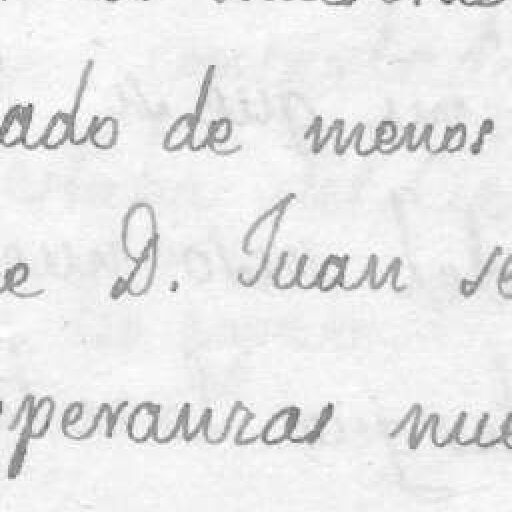 ado de menos
e D. Juan se
speranzas nue